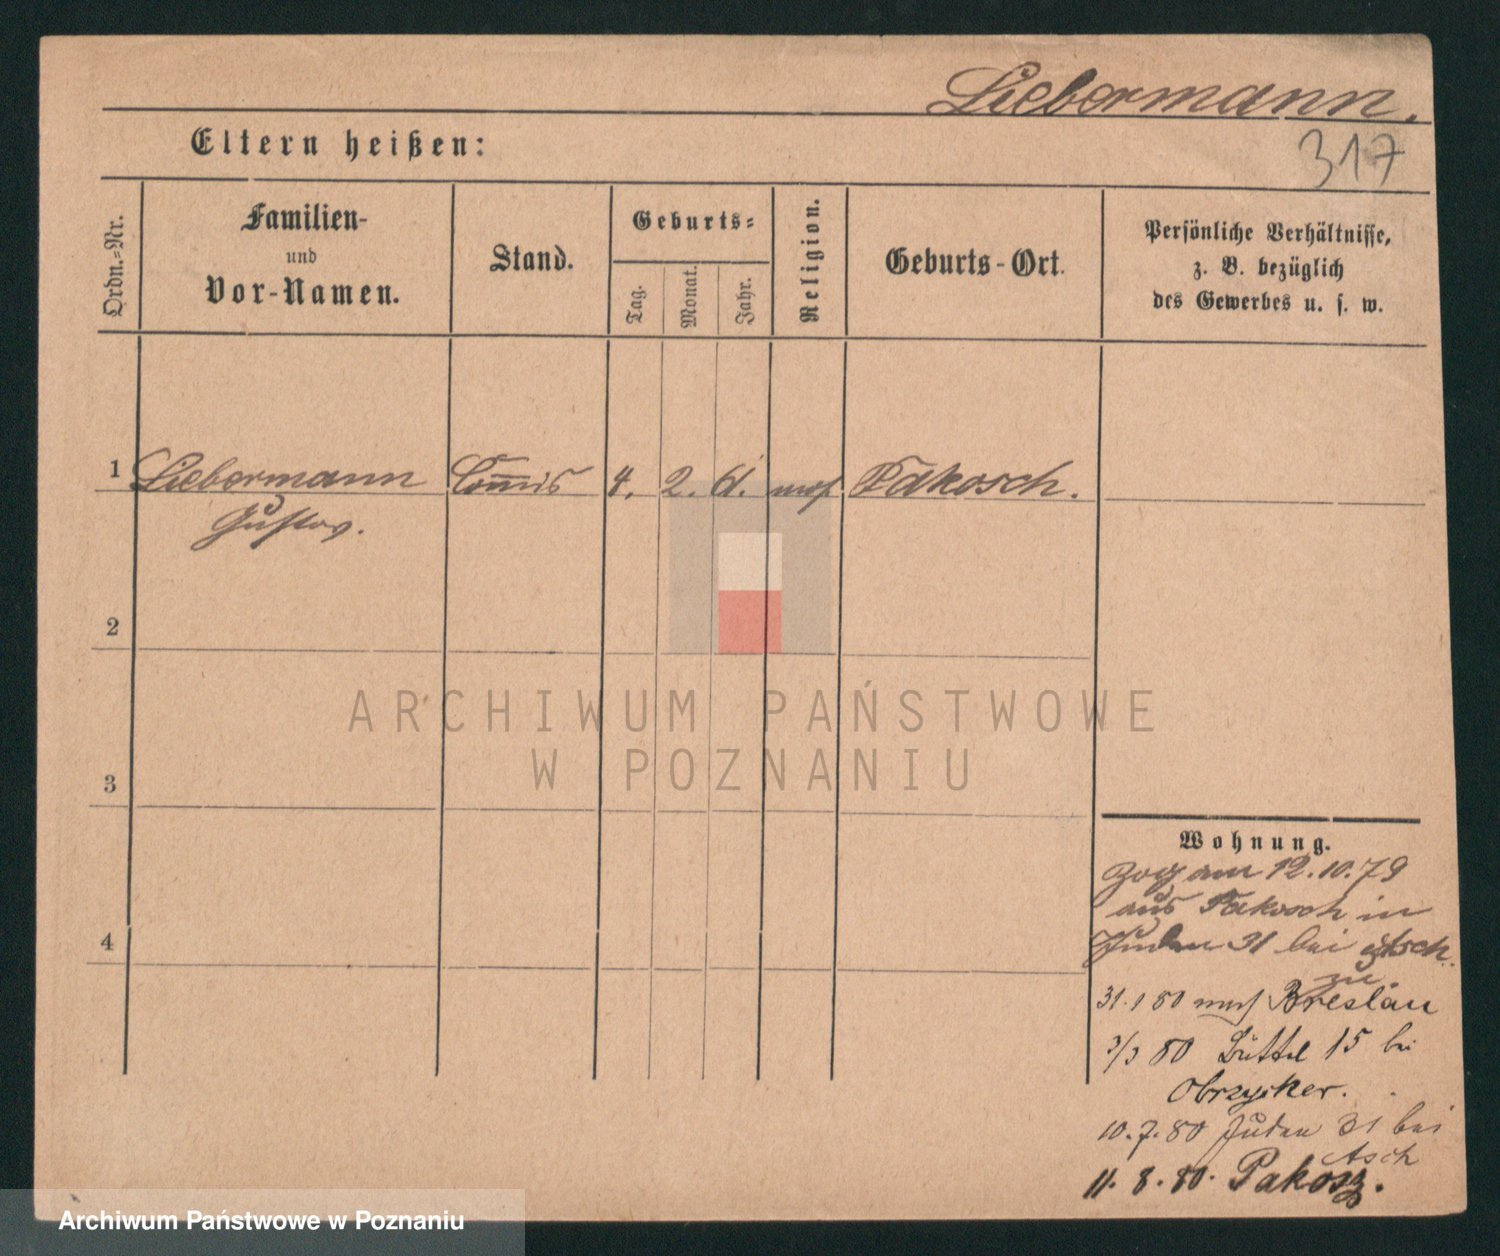 Liebermann.
317
Eltern heißen:
Ordn.=Nr.
Familien-
und
Vor-Namen.
Stand.
Geburts=
Tag.
Monat.
Jahr.
Religion.
Geburts-Ort.
Persönliche Verhältnisse,
z. B. bezüglich
des Gewerbes u. s. w.
1 Liebermann Com̄is 4. 2. 61. mos Pakosch.
Gustav.
2
ARCHIWUM PAŃSTWOWE
W POZNANIU
3
4
Wohnung.
Zog am 12.10.79
aus Pakosch in
Juden 31 bei Asch.
zu.
31.1 80 nach Breslau
3/3 80 Büttel 15 bei
Obrzycker.
10.7.80 Juden 31 bei
Asch
11.8.80. Pakosz.
Archiwum Państwowe w Poznaniu